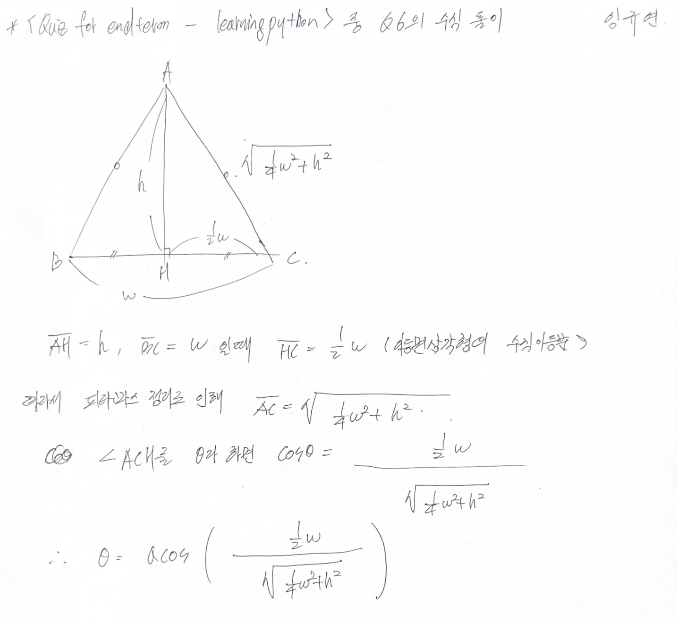 * <Quiz for endterm - learningpython> 중 Q6의 수식 풀이 임규연.
A
√(1/4w²+h²)
h
1/2w
B H C.
w
AH = h, BC = w 일때 HC = 1/2 w (이등변삼각형의 수직이등분)
따라서 피타고라스 정리로 인해 AC = √(1/4w²+h²).
∠ACH를 θ라 하면 cosθ = 1/2 w / √(1/4w²+h²)
∴ θ = acos ( 1/2w / √(1/4w²+h²) )